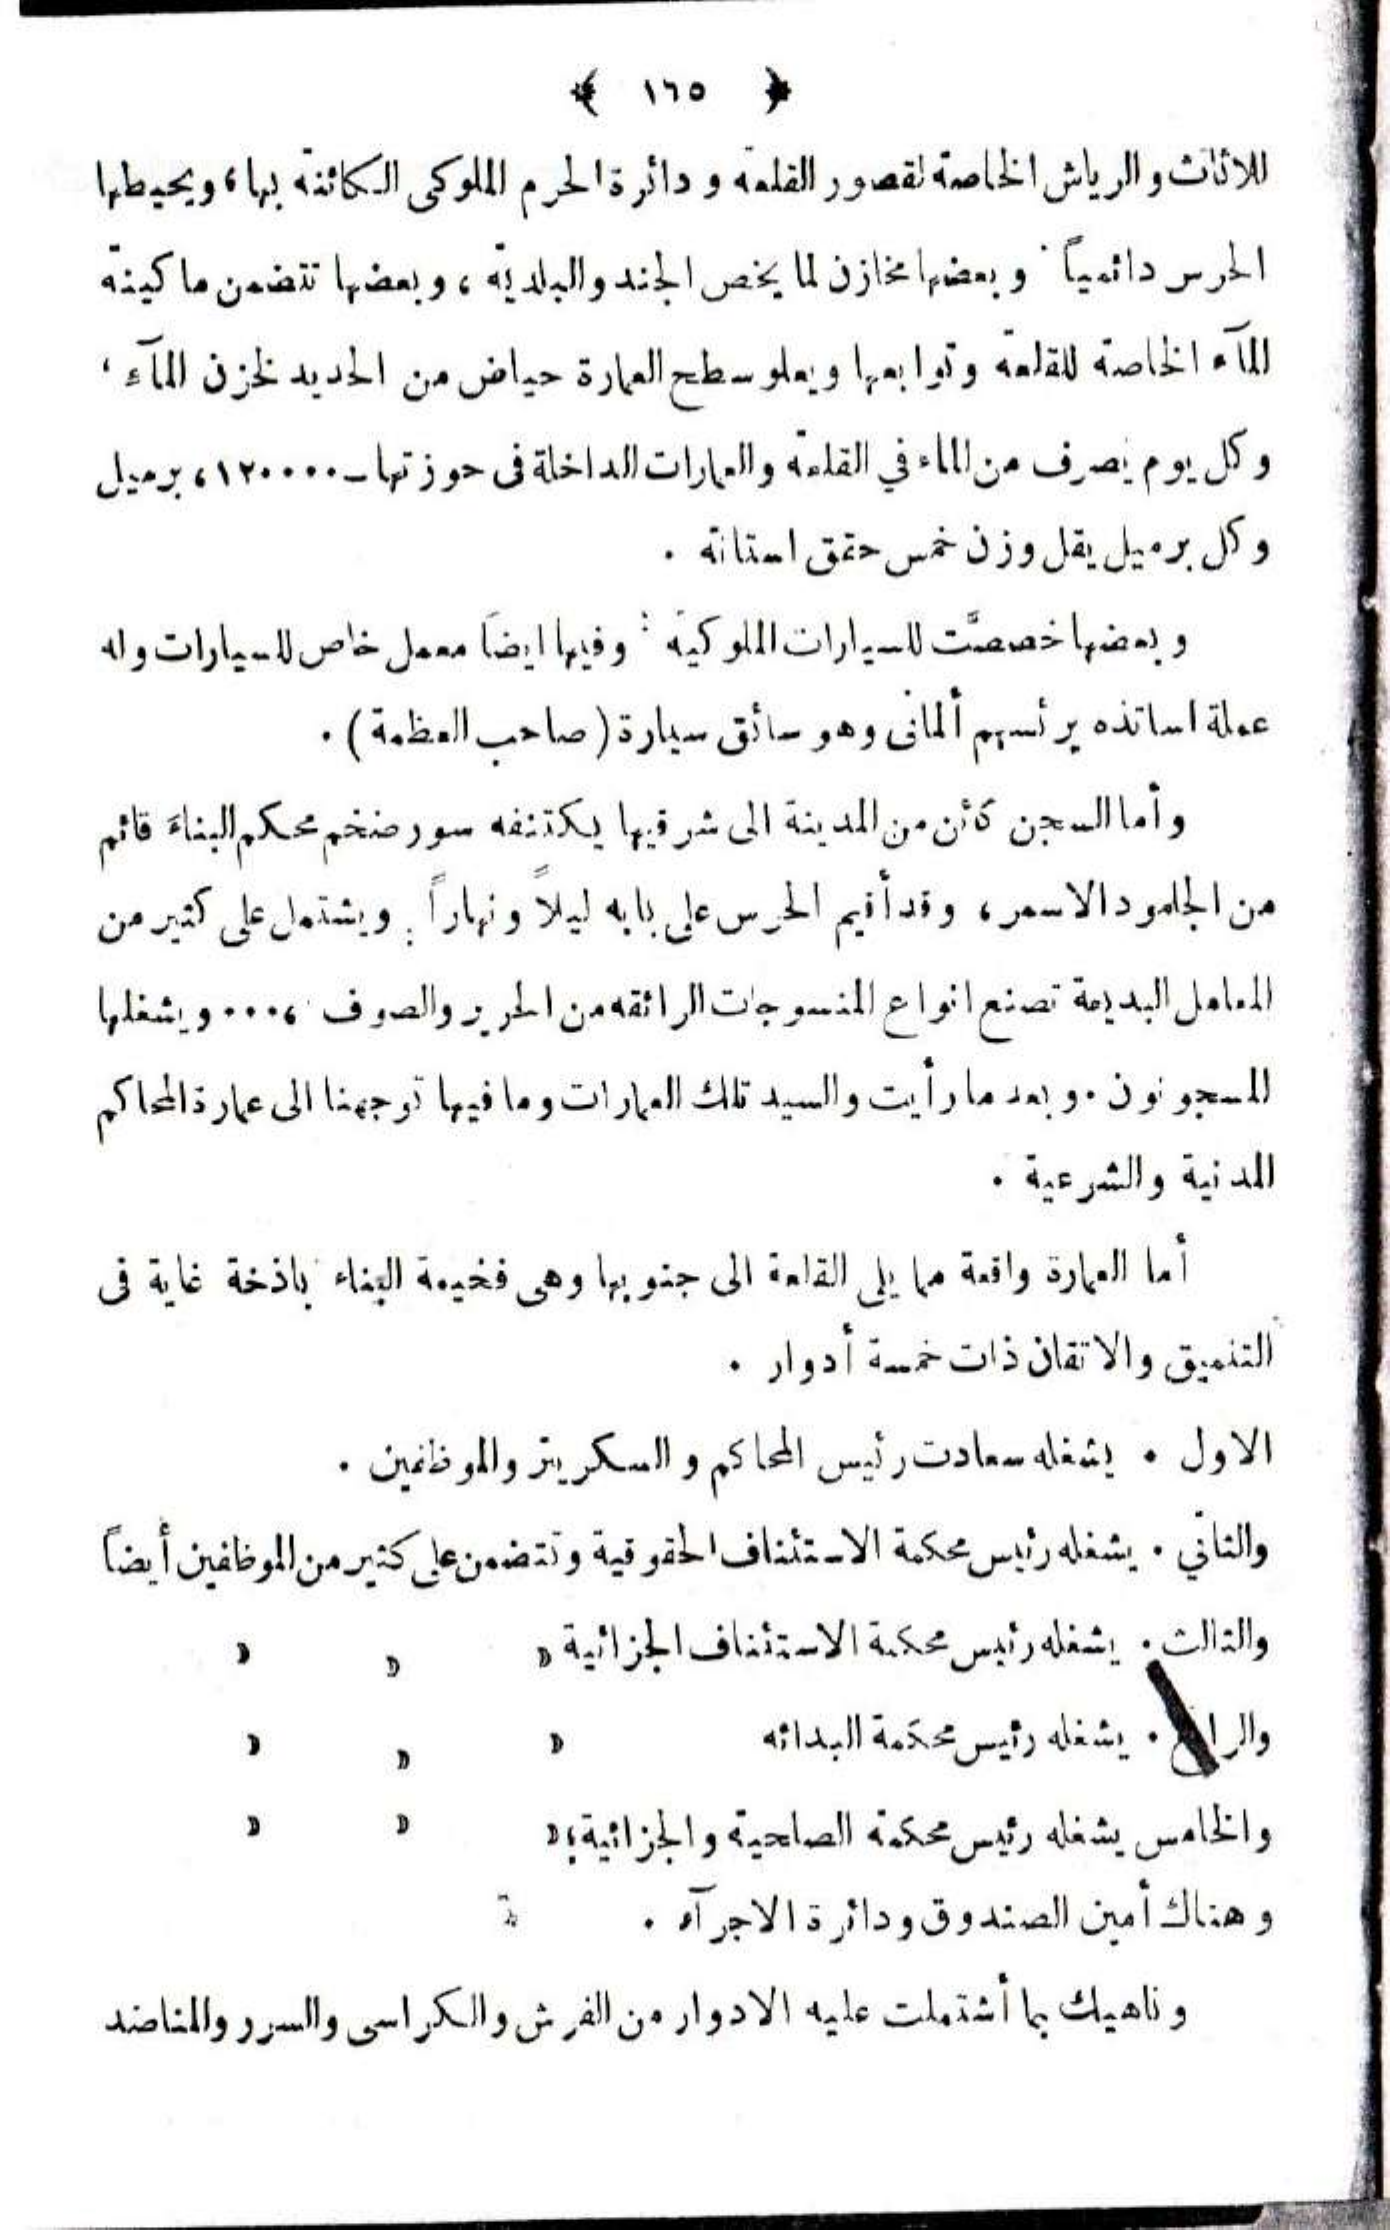 ﴿ ١٦٥ ﴾
للاثاث والرياش الخاصة لقصور القلعة و دائرة الحرم الملوكى الكائنة بها، ويحيطها
الحرس دائمياً و بعضها مخازن لما يخص الجند والبلدية ، و بعضها تتضمن ماكينة
المآء الخاصة للقلعة وتوابعها ويعلو سطح العمارة حياض من الحديد لخزن المآءِ ،
وكل يوم يصرف من الماء في القلعة والعمارات الداخلة فى حوزتها ـ ١٢٠٠٠٠، برميل
وكل برميل يقل وزن خمس حقق استانة .
و بعضها خصصَّت للسيارات الملوكية : وفيها ايضاً معمل خاص للسيارات وله
عملة اساتذه يرئسهم ألمانى وهو سائق سيارة (صاحب العظمة) .
وأما السجن كائن من المدينة الى شرقيها يكتنفه سور ضخم محكم البناءَ قائم
من الجلمود الاسمر ، وقد أقيم الحرس على بابه ليلاً ونهاراً . ويشتمل على كثير من
المعامل البديعة تصنع انواع المنسوجات الرائقه من الحرير والصوف ،٠٠٠ ويشغلها
المسجونون . و بعد ما رأيت والسيد تلك العمارات وما فيها توجهنا الى عمارة المحاكم
المدنية والشرعية .
أما العمارة واقعة مما يلى القلعة الى جنوبها وهى فخيمة البناء باذخة غاية فى
التنميق والاتقان ذات خمسة أدوار .
الاول . يشغله سعادت رئيس المحاكم و السكريتر والموظفين .
والثاني . يشغله رئيس محكمة الاستئناف الحقوقية وتتضمن على كثير من الموظفين أيضاً
والثالث . يشغله رئيس محكمة الاستئناف الجزائية » » »
والرابع . يشغله رئيس محكمة البدائه » » »
والخامس يشغله رئيس محكمة الصلحية والجزائية؛ » » »
وهناك أمين الصندوق ودائرة الاجرآء .
وناهيك بما أشتملت عليه الادوار من الفرش والكراسى والسرر والمناضد